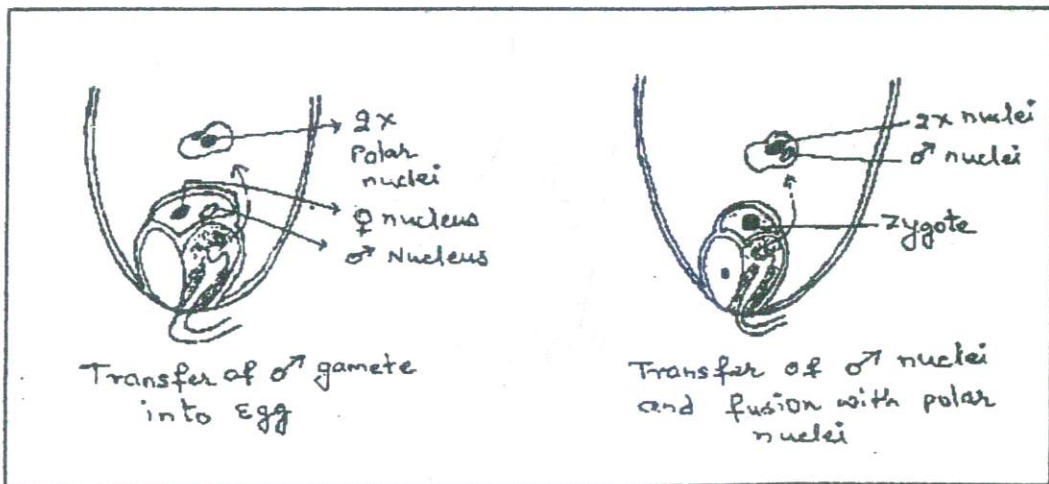 2x
Polar
nuclei
♀ nucleus
♂ Nucleus
Transfer of ♂ gamete
into Egg
2x nuclei
♂ nuclei
Zygote
Transfer of ♂ nuclei
and fusion with polar
nuclei